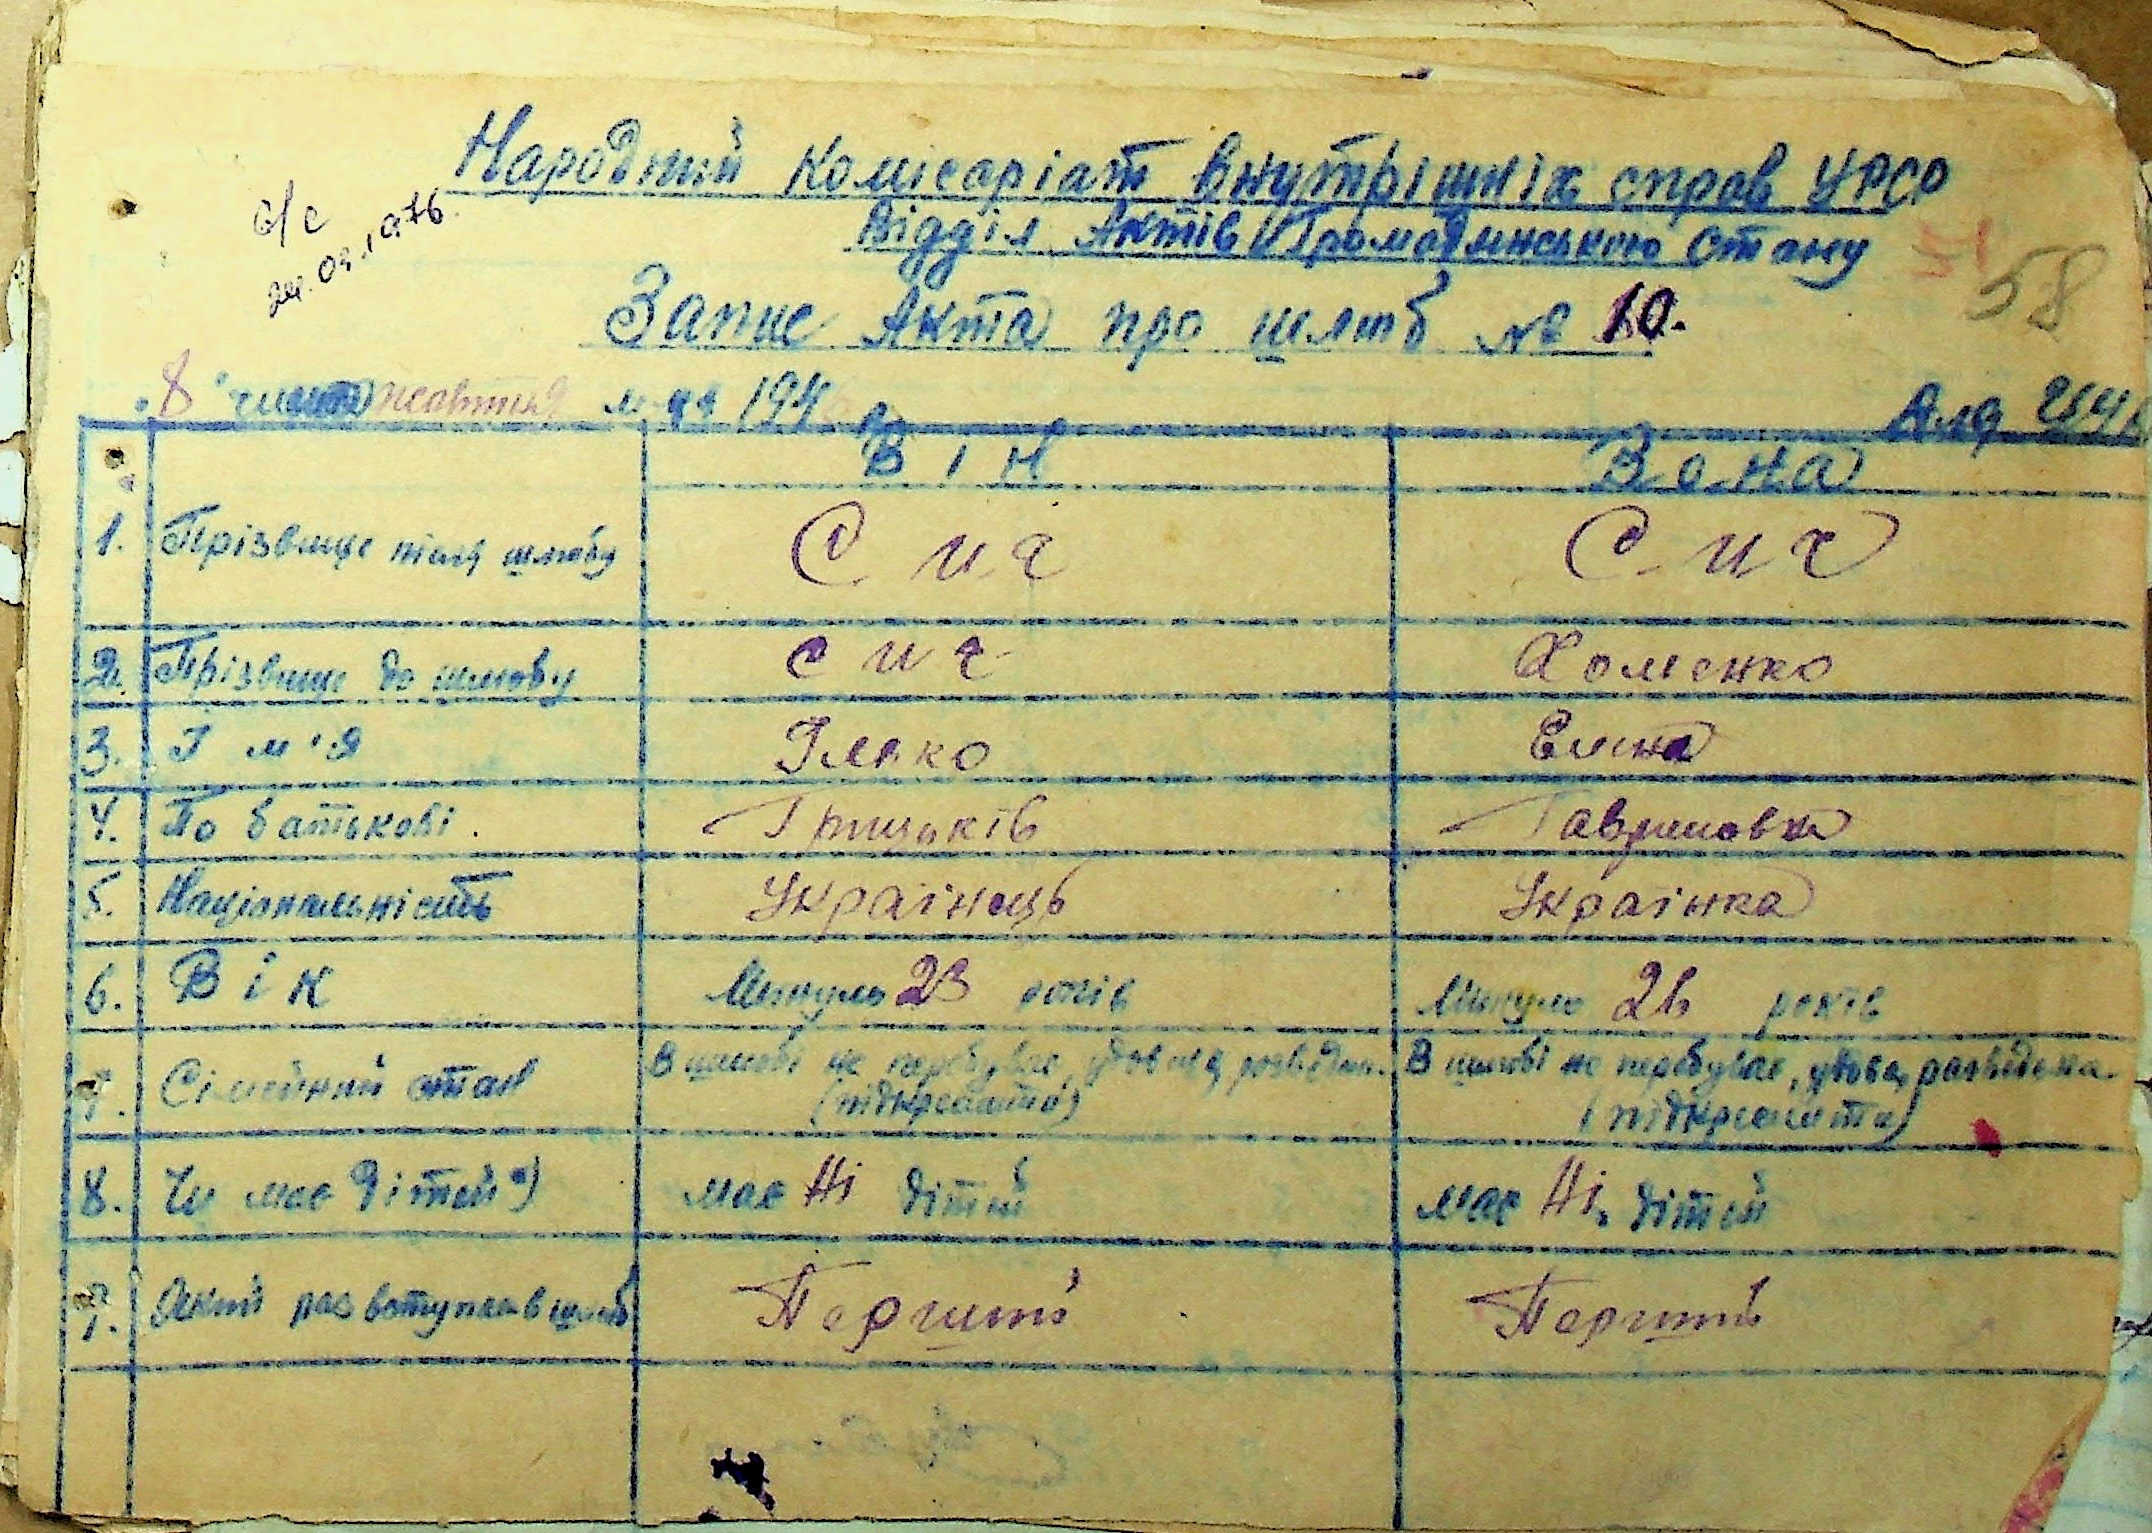 Народний комісаріат внутрішніх справ УРСР
Відділ Актів Громадянського Стану
58
Запис Акта про шлюб № 10.
8 числа жовтня м-ця 194
Він Вона
1. Прізвище після шлюбу Сич Сич
2. Прізвище до шлюбу Сич Хоменко
3. Ім'я Ілько Елена
4. По батькові. Грицьків Гавриловна
5. Національність Українець Українка
6. Вік Минуло 23 років Минуло 26 років
7. Сімейний стан В шлюбі не перебуває, удовець, розведен. В шлюбі не перебуває, удова, розведена.
(підкреслити) (підкреслити)
8. Чи має дітей*) має Ні дітей має Ні дітей
9. Який раз вступає в шлюб Перший Перший